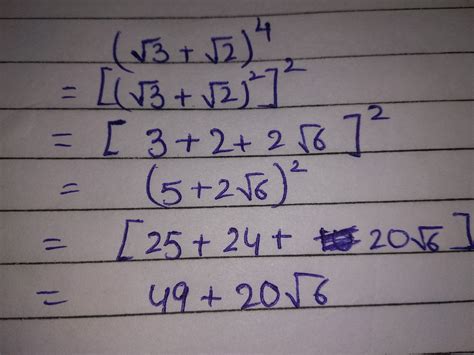 (√3 + √2)^4
= [(√3 + √2)^2]^2
= [ 3 + 2 + 2√6 ]^2
= (5 + 2√6)^2
= [25 + 24 + 20√6]
= 49 + 20√6